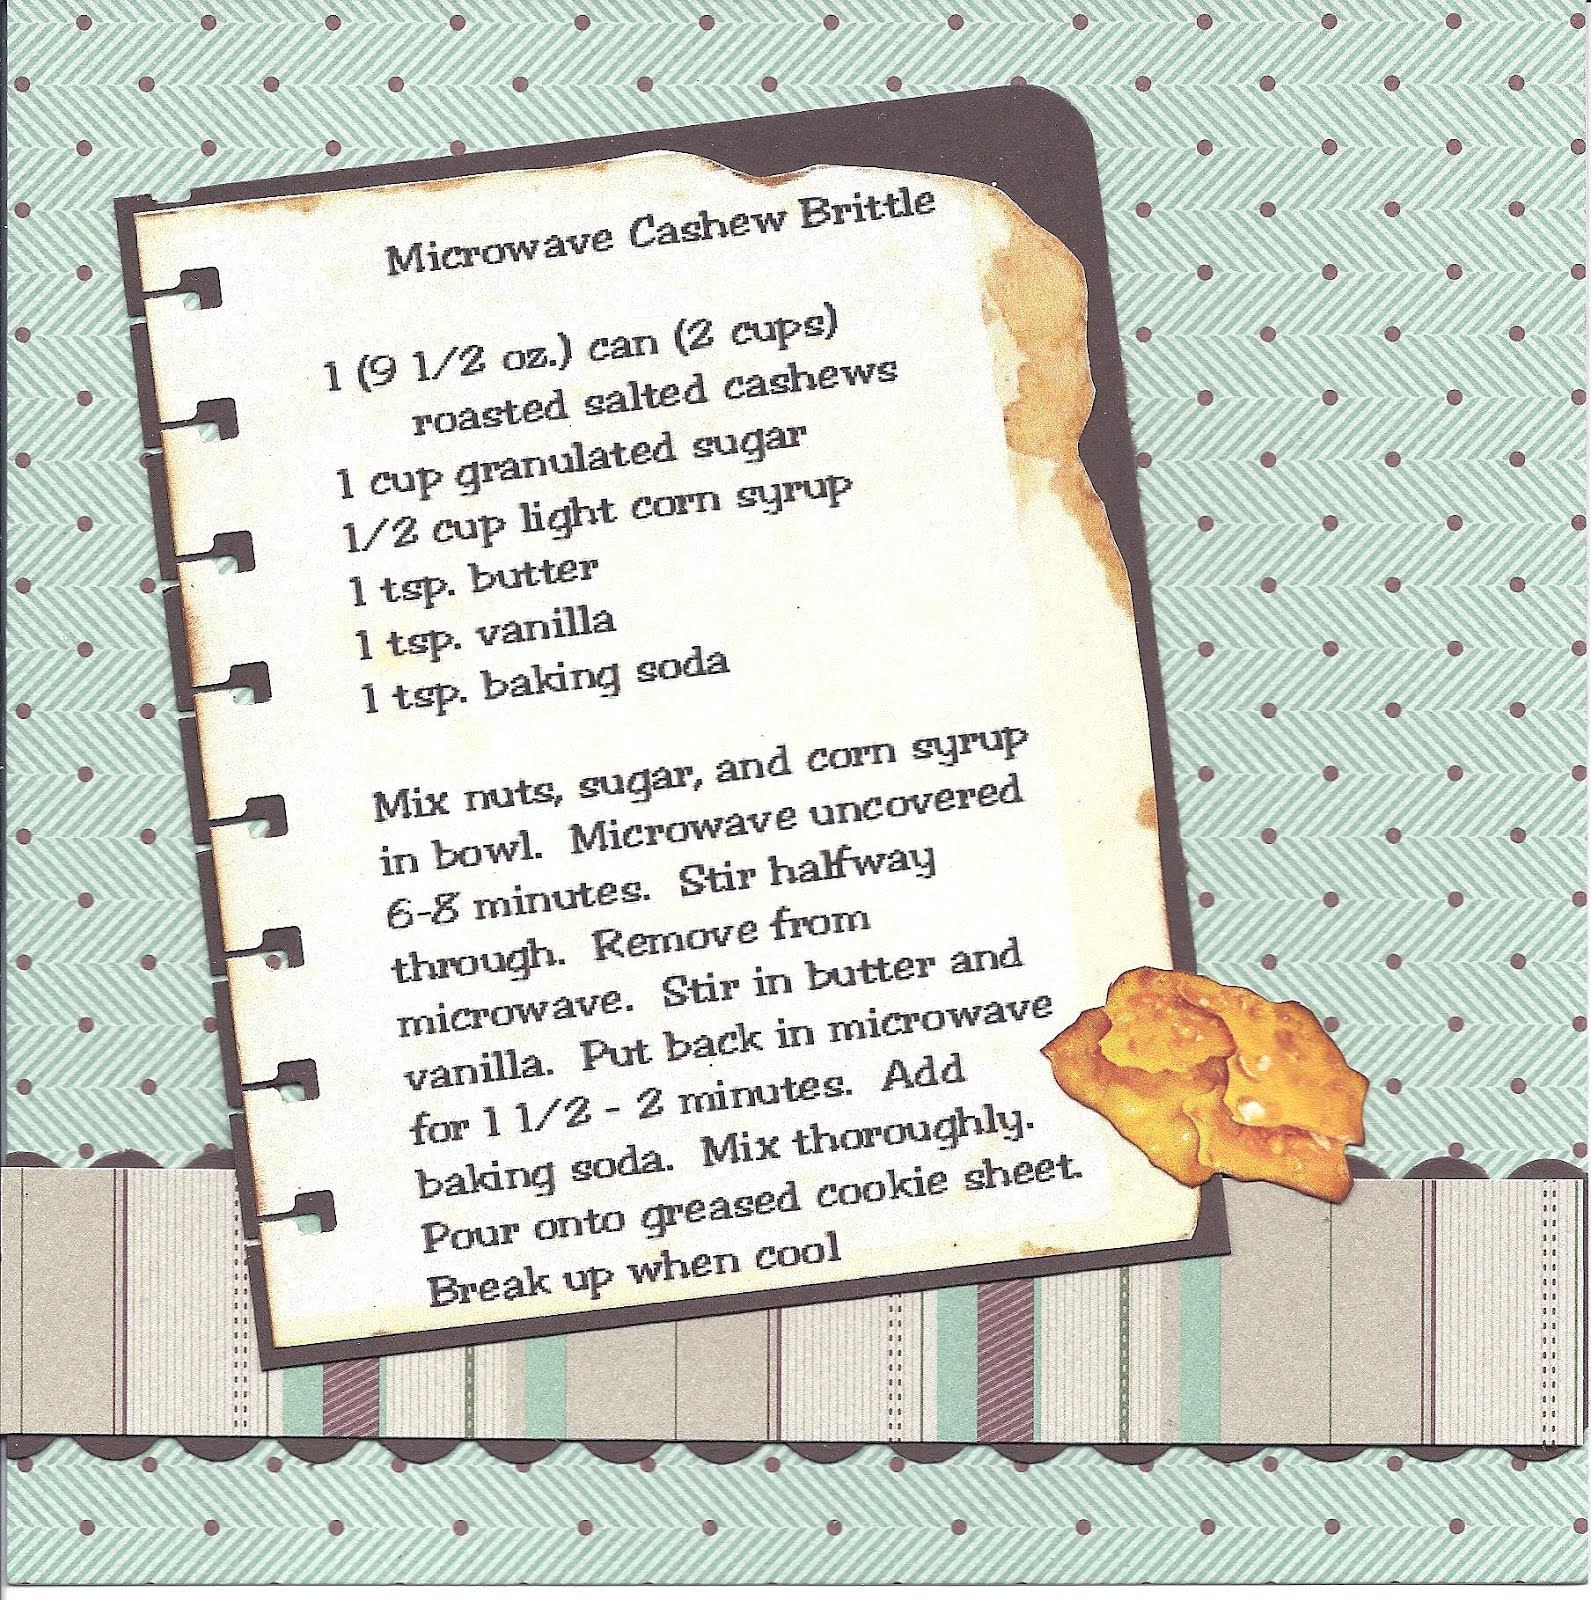 Microwave Cashew Brittle
1 (9 1/2 oz.) can (2 cups)
roasted salted cashews
1 cup granulated sugar
1/2 cup light corn syrup
1 tsp. butter
1 tsp. vanilla
1 tsp. baking soda
Mix nuts, sugar, and corn syrup
in bowl. Microwave uncovered
6-8 minutes. Stir halfway
through. Remove from
microwave. Stir in butter and
vanilla. Put back in microwave
for 1 1/2 - 2 minutes. Add
baking soda. Mix thoroughly.
Pour onto greased cookie sheet.
Break up when cool